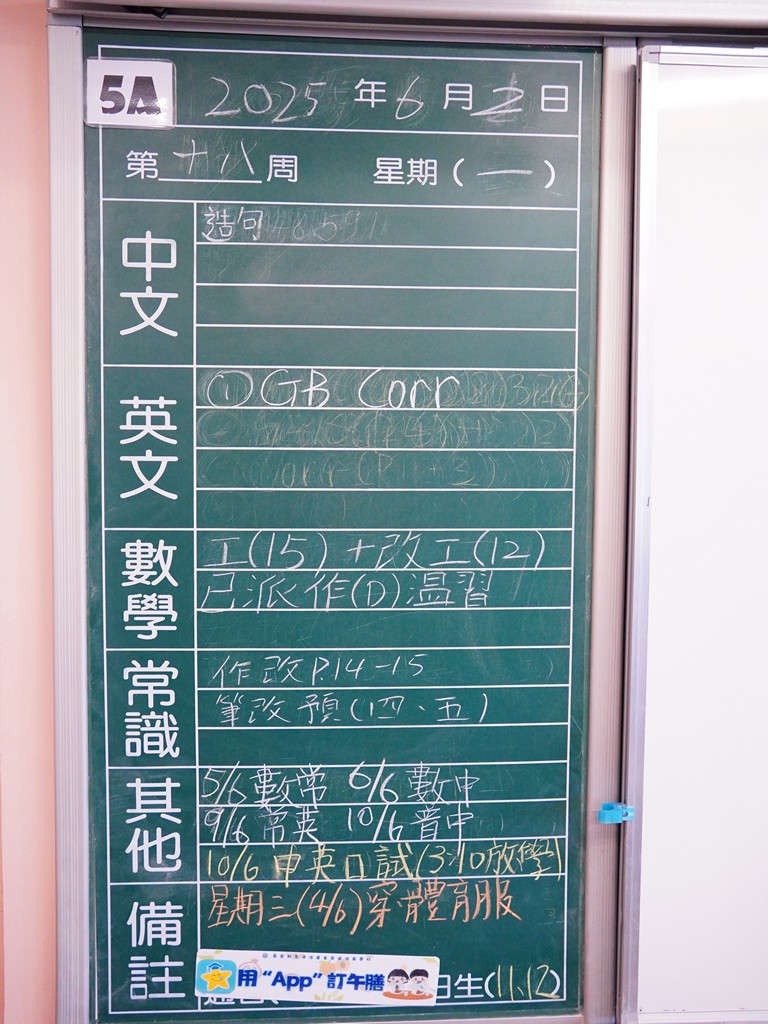 5A 2025年6月2日
第十八周 星期(一)
中文
造句
英文
① GB Corr
數學
工(15)+改工(12)
已派作(D)溫習
常識
作改P.14-15
筆改預(四、五)
其他
5/6 數常 6/6 數中
9/6 常英 10/6 普中
10/6 中英口試(3:10放學)
備註
星期三(4/6)穿體育服
用“App”訂午膳
日生(11,12)